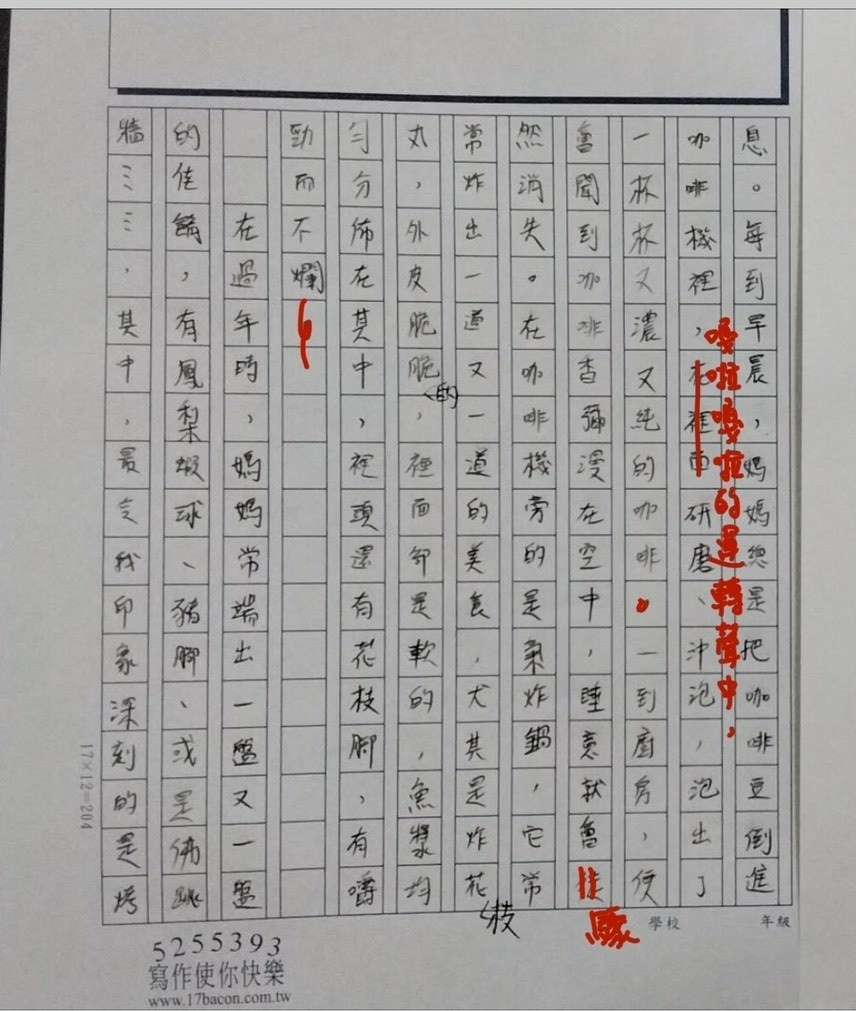 息。每到早晨，媽媽總是把咖啡豆倒進
咖啡機裡，在裡面研磨、沖泡，泡出了
嘎啦嘎啦的運轉聲中，
一杯杯又濃又純的咖啡。一到廚房，便
會聞到咖啡香彌漫在空中，睡意就會
驟
然消失。在咖啡機旁的是氣炸鍋，它常
常炸出一道又一道的美食，尤其是炸花
枝
丸，外皮脆脆，裡面卻是軟的，魚漿均
的
勻分佈在其中，裡頭還有花枝腳，有嚼
勁而不爛
在過年時，媽媽常端出一盤又一盤
的佳餚，有鳳梨蝦球、豬腳、或是佛跳
牆……，其中，最令我印象深刻的是烤
17×12=204
學校
年級
5255393
寫作使你快樂
www.17bacon.com.tw